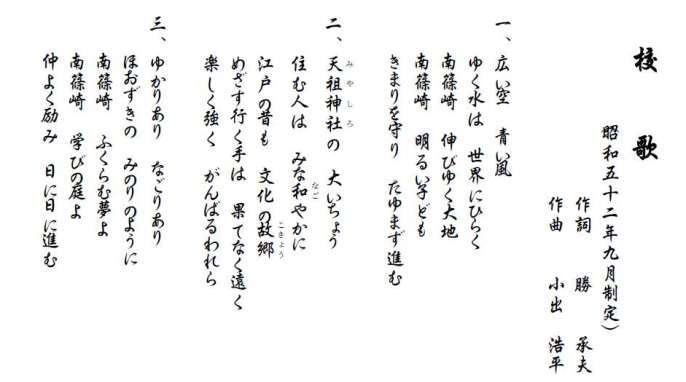 校歌
昭和五十二年九月制定）
作詞　勝　承夫
作曲　小出　浩平
一、広い空　青い風
ゆく水は　世界にひらく
南篠崎　伸びゆく大地
南篠崎　明るい子ども
きまりを守り　たゆまず進む
二、天祖神社の　大いちょう
みやしろ
住む人は　みな和やかに
なご
江戸の昔も　文化の故郷
こきょう
めざす行く手は　果てなく遠く
楽しく強く　がんばるわれら
三、ゆかりあり　なごりあり
ほおずきの　みのりのように
南篠崎　ふくらむ夢よ
南篠崎　学びの庭よ
仲よく励み　日に日に進む